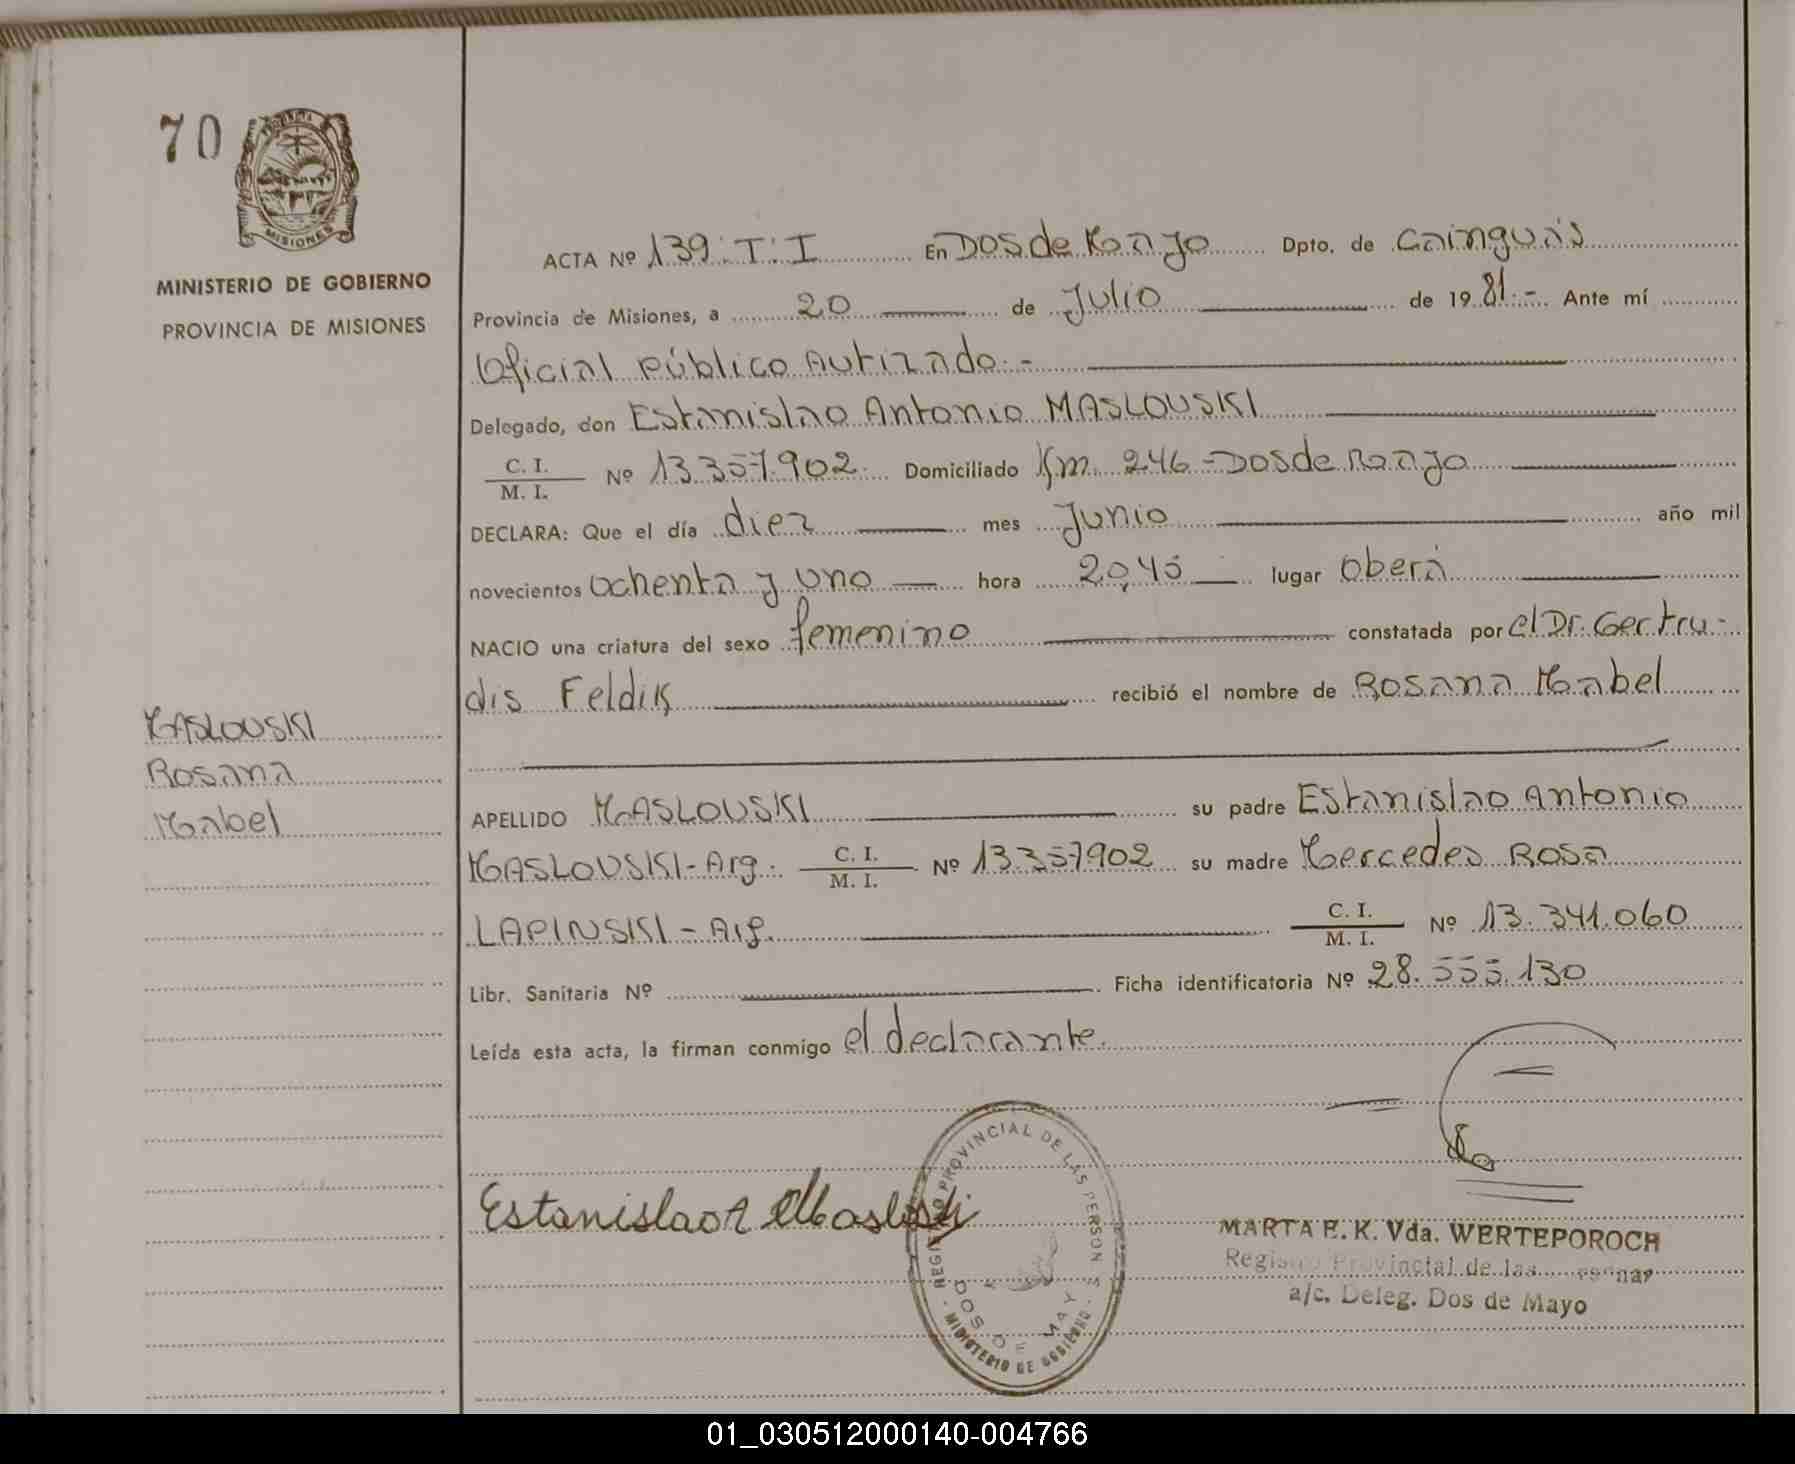 70
MISIONES
MINISTERIO DE GOBIERNO
PROVINCIA DE MISIONES
ACTA Nº 139 T: I En Dos de Mayo Dpto. de Cainguás
Provincia de Misiones, a 20 de Julio de 1981.- Ante mí
Oficial Público Autizado.-
Delegado, don Estanislao Antonio MASLOUSKI
C. I.
M. I. Nº 13.357.902 Domiciliado Km. 246 - Dos de Mayo
DECLARA: Que el día diez mes Junio año mil
novecientos ochenta y uno hora 20,45 lugar Oberá
NACIO una criatura del sexo femenino constatada por el Dr. Gertru-
dis Feldik recibió el nombre de Rosana Mabel
MASLOUSKI
Rosana
Mabel
APELLIDO MASLOUSKI su padre Estanislao Antonio
MASLOUSKI-Arg. C. I.
M. I. Nº 13.357902 su madre Mercedes Rosa
LAPINSKI - Arg. C. I.
M. I. Nº 13.341.060
Libr. Sanitaria Nº Ficha identificatoria Nº 28.555.130
Leída esta acta, la firman conmigo el declarante.
Estanislao A Maslouski
REGISTRO PROVINCIAL DE LAS PERSONAS
DOS DE MAYO
- MINISTERIO DE GOBIERNO -
MARTA E. K. Vda. WERTEPOROCH
Registro Provincial de las Personas
a/c. Deleg. Dos de Mayo
01_030512000140-004766